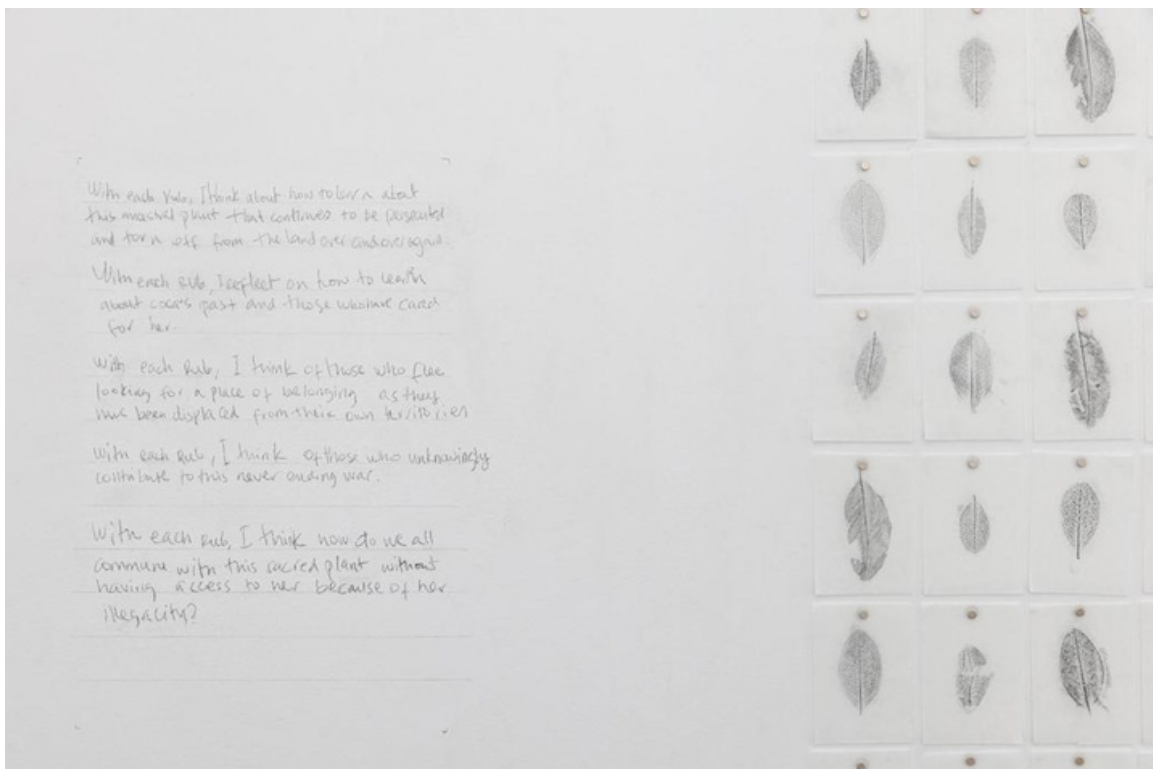 With each Rub, I think about how to learn about
this ancestral plant that continues to be persecuted
and torn off from the land over and over again.
With each Rub, I reflect on how to learn
about coca's past and those who have cared
for her.
With each Rub, I think of those who flee
looking for a place of belonging as they
have been displaced from their own territories
With each Rub, I think of those who unknowingly
contribute to this never ending war.
With each Rub, I think how do we all
commune with this sacred plant without
having access to her because of her
illegality?